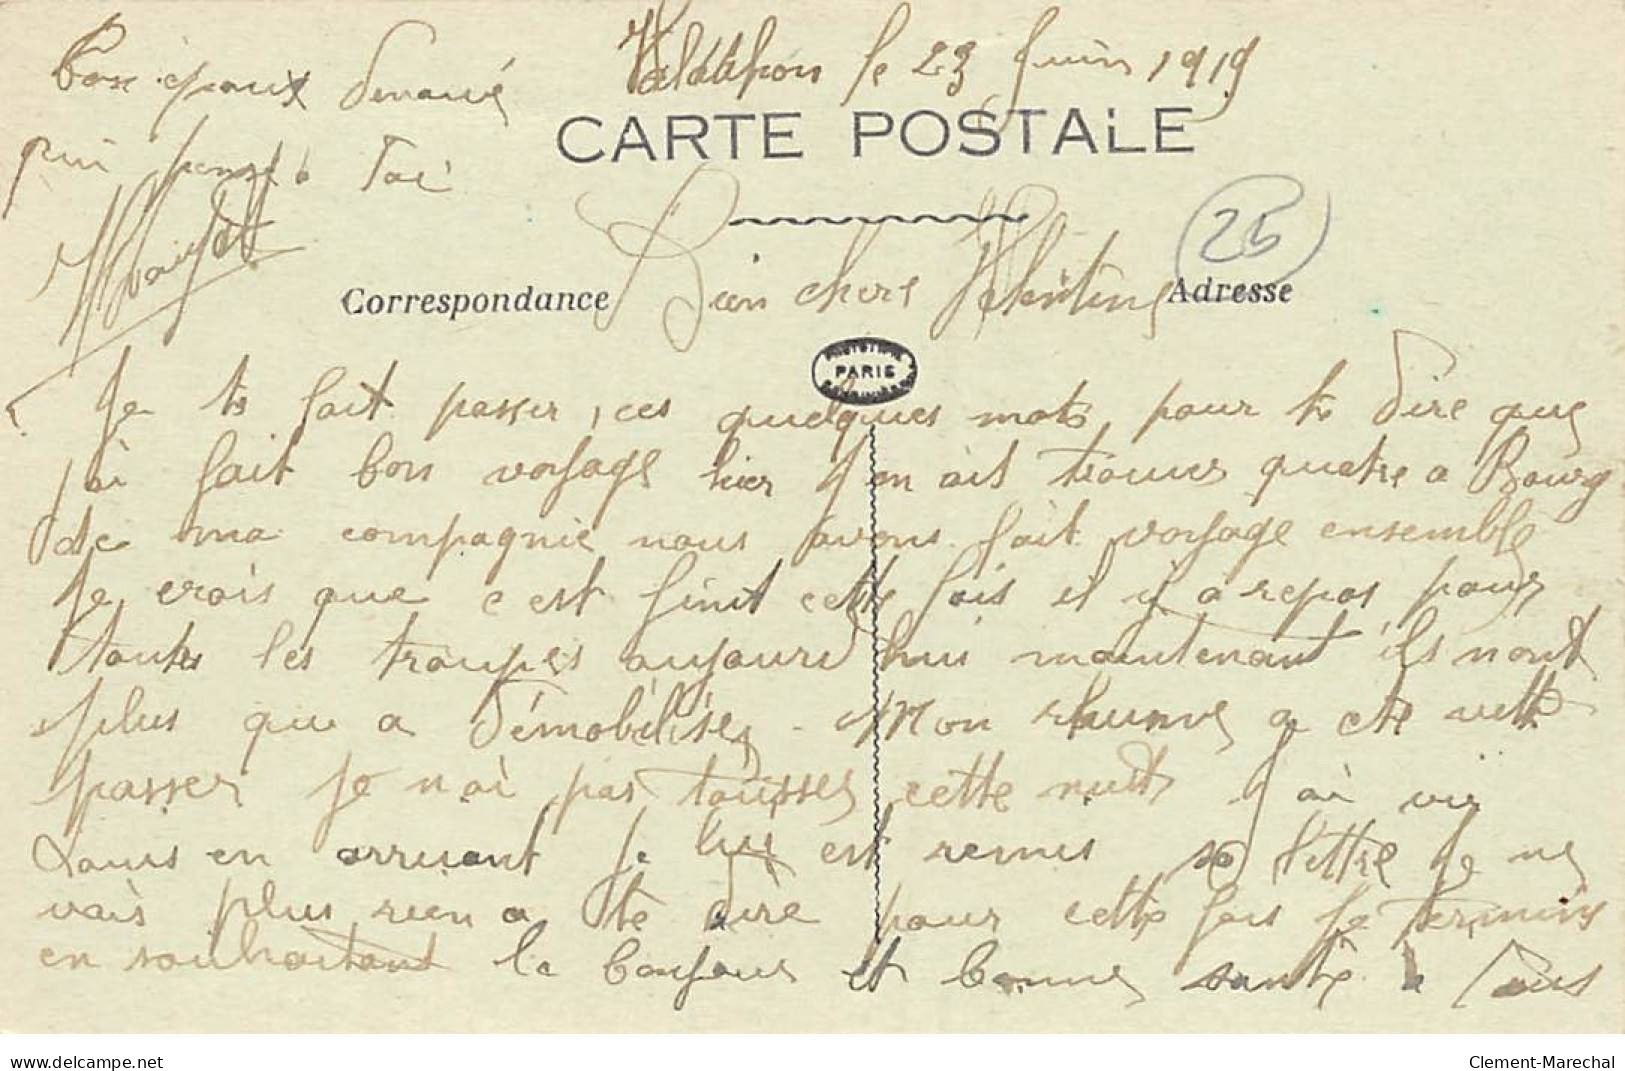 Valdahon le 23 Juin 1919
CARTE POSTALE
Correspondance
Adresse
25
PARIS
Bien chere Valentine
Je te fait passer, ces quelques mots pour te dire que
j'ai fait bon voyage hier J en ait trouver quatre a Bourg
de ma compagnie nous avons fait voyage ensemble
Je crois que c est finit cette fois il y a repos pour
toutes les troupes aujourd huis maintenant ils nont
plus qu a démobiliser - Mon rhume a ete vitte
passer je n ai pas tousser cette nuit J ai vu
Louis en arrivant je lui est remis sa lettre Je ne
vais plus rien a te dire pour cette fois je termine
en souhaitant le bonjour et bonne santé a tous
Ton epoux devoué
qui pense a Toi
delcampe.net
Clement-Marechal